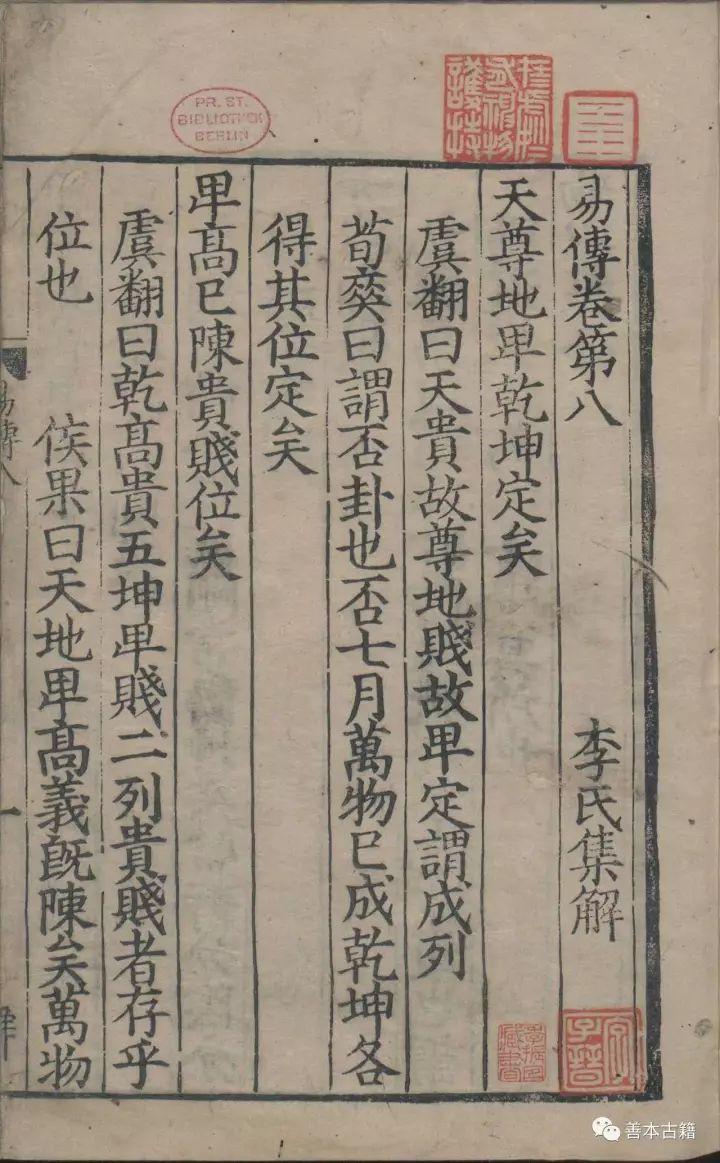 易傳卷第八 李氏集解
天尊地卑乾坤定矣
虞翻曰天貴故尊地賤故卑定謂成列
荀爽曰謂否卦也否七月萬物已成乾坤各
得其位定矣
卑高已陳貴賤位矣
虞翻曰乾高貴五坤卑賤二列貴賤者存乎
位也 侯果曰天地卑高義既陳矣萬物
易傳八
一
PR. ST.
BIBLIOTHEK
BERLIN
善本古籍